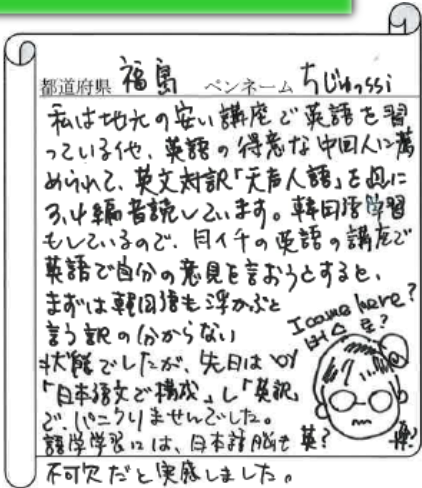 都道府県 福島 ペンネーム ちじゅっssi
私は地元の安い講座で英語を習
っている他、英語の得意な中国人に薦
められて、英文対訳「天声人語」を週に
3,4編音読しています。韓国語学習
もしているので、月イチの英語の講座で
英語で自分の意見を言おうとすると、
まずは韓国語も浮かぶと
言う訳の分からない
状態でしたが、先日は
「日本語文で構成」し「英訳」
で、パニクりませんでした。
語学学習には、日本語脳も
不可欠だと実感しました。
I came here?
버스로?
英?